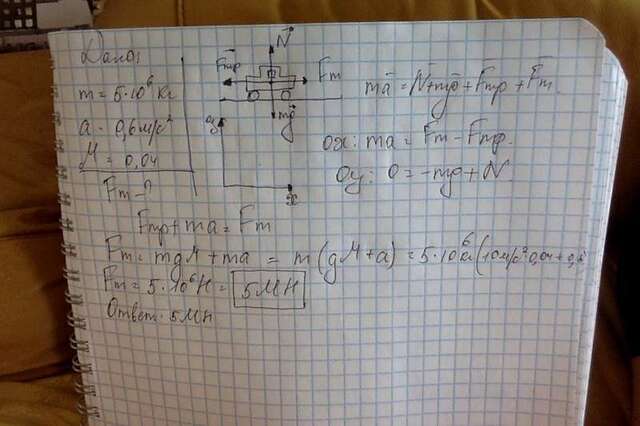 Дано:
m = 5·10⁶ кг
a = 0,6 м/с²
μ = 0,04
Fт - ?
N
Fтр
Fт
mg
y
x
ma = N + mg + Fтр + Fт
ox: ma = Fт - Fтр.
oy: 0 = -mg + N
Fтр + ma = Fт
Fт = mgμ + ma = m(gμ + a) = 5·10⁶ кг(10м/с²·0,04 + 0,6
Fт = 5·10⁶ Н = 5МН
Ответ: 5МН